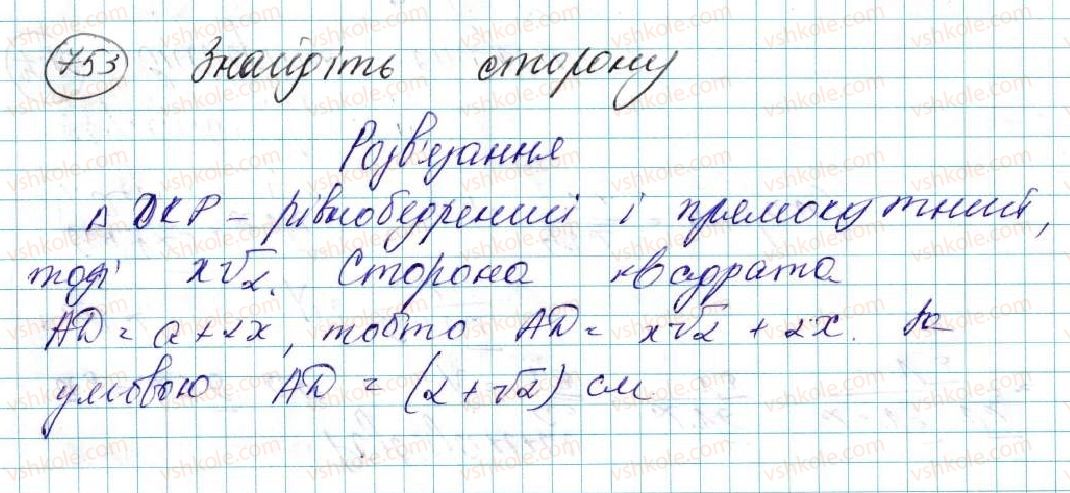 753 Знайдіть сторону
Розв'язання
Δ DKP – рівнобедрений і прямокутний,
тоді x√2. Сторона квадрата
AD = a + 2x, тобто AD = x√2 + 2x. За
умовою AD = (2 + √2) см